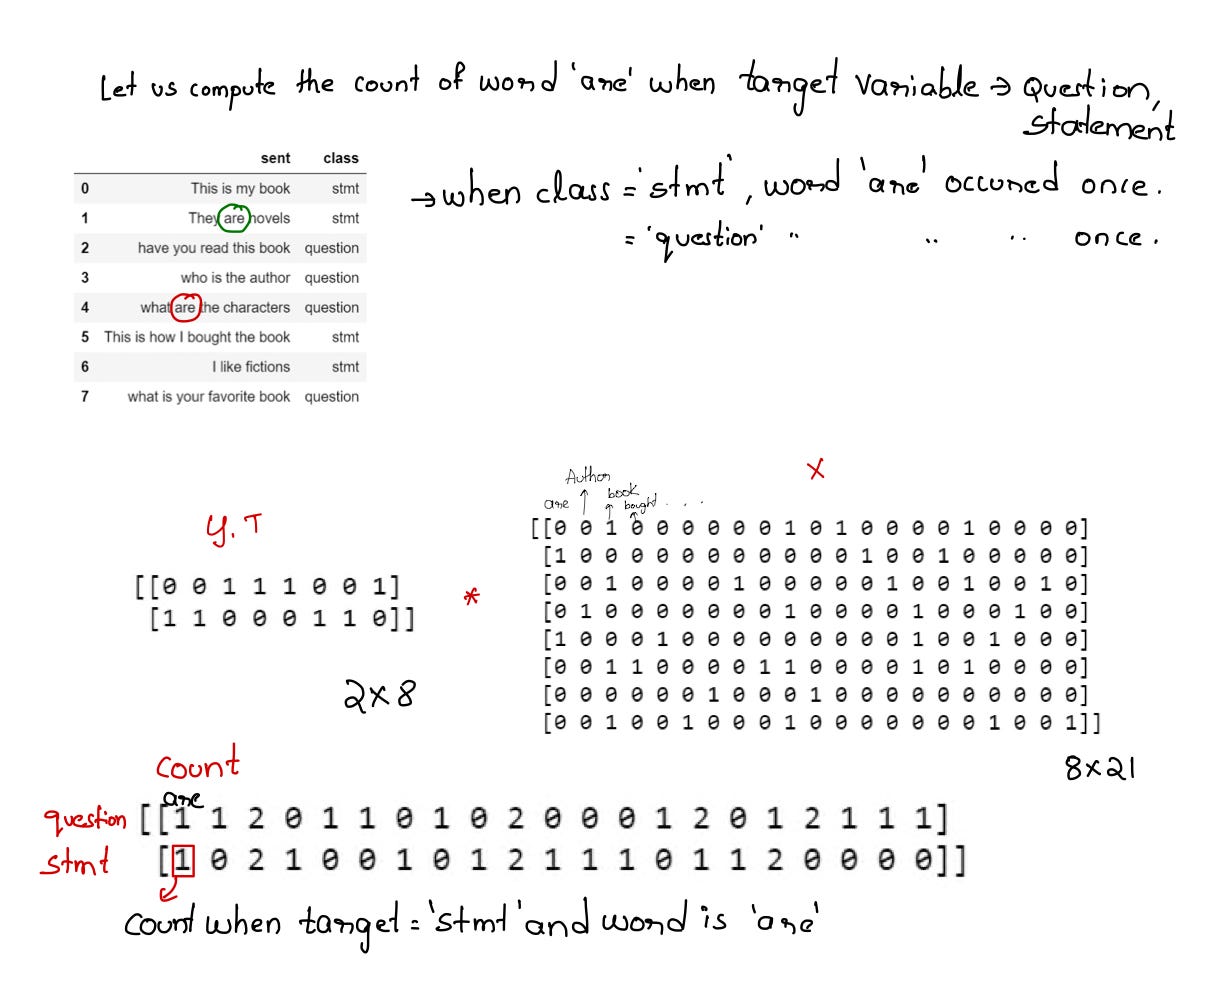 Let us compute the count of word 'are' when target variable → Question,
Statement
sent class
0 This is my book stmt
1 They are novels stmt
2 have you read this book question
3 who is the author question
4 what are the characters question
5 This is how I bought the book stmt
6 I like fictions stmt
7 what is your favorite book question
→ when class = 'stmt', word 'are' occured once.
= 'question' " " " once.
X
Author
book
are bought . . .
y.T
[[0 0 1 0 0 0 0 0 0 1 0 1 0 0 0 0 1 0 0 0 0]
[1 0 0 0 0 0 0 0 0 0 0 0 1 0 0 1 0 0 0 0 0]
[0 0 1 0 0 0 0 1 0 0 0 0 0 1 0 0 1 0 0 1 0]
[0 1 0 0 0 0 0 0 0 1 0 0 0 0 1 0 0 0 1 0 0]
[1 0 0 0 1 0 0 0 0 0 0 0 0 0 1 0 0 1 0 0 0]
[0 0 1 1 0 0 0 0 1 1 0 0 0 0 1 0 1 0 0 0 0]
[0 0 0 0 0 0 1 0 0 0 1 0 0 0 0 0 0 0 0 0 0]
[0 0 1 0 0 1 0 0 0 1 0 0 0 0 0 0 0 1 0 0 1]]
[[0 0 1 1 1 0 0 1]
[1 1 0 0 0 1 1 0]]
*
2×8
8×21
count
are
question [[1 1 2 0 1 1 0 1 0 2 0 0 0 1 2 0 1 2 1 1 1]
stmt [1 0 2 1 0 0 1 0 1 2 1 1 1 0 1 1 2 0 0 0 0]]
count when target = 'stmt' and word is 'are'